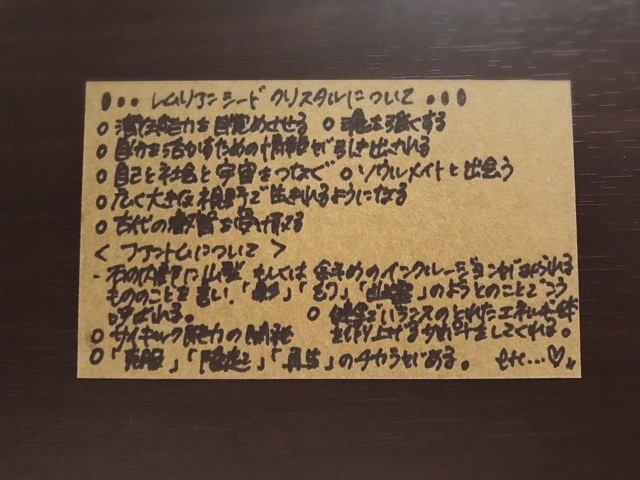 レムリアンシードクリスタルについて
○ 潜在能力を目覚めさせる ○ 魂を強くする
○ 自分を活かすための情報が引き出される
○ 自己と社会と宇宙をつなぐ ○ ソウルメイトと出会う
○ 広く大きな視野で生きれるようになる
○ 古代の叡智を受け取る
< ファントムについて >
- 石の内部に山型もしくは斜めのインクルージョンがみられる
もののことを言い、「」「幻」「」のようとのことでこう
呼ばれる。 ○ 健全でバランスのとれたエネルギー体
○ サイキック能力の開花 を作り上げる手助けをしてくれる。
○ 「克服」「」「再生」のチカラがある。 etc...♡